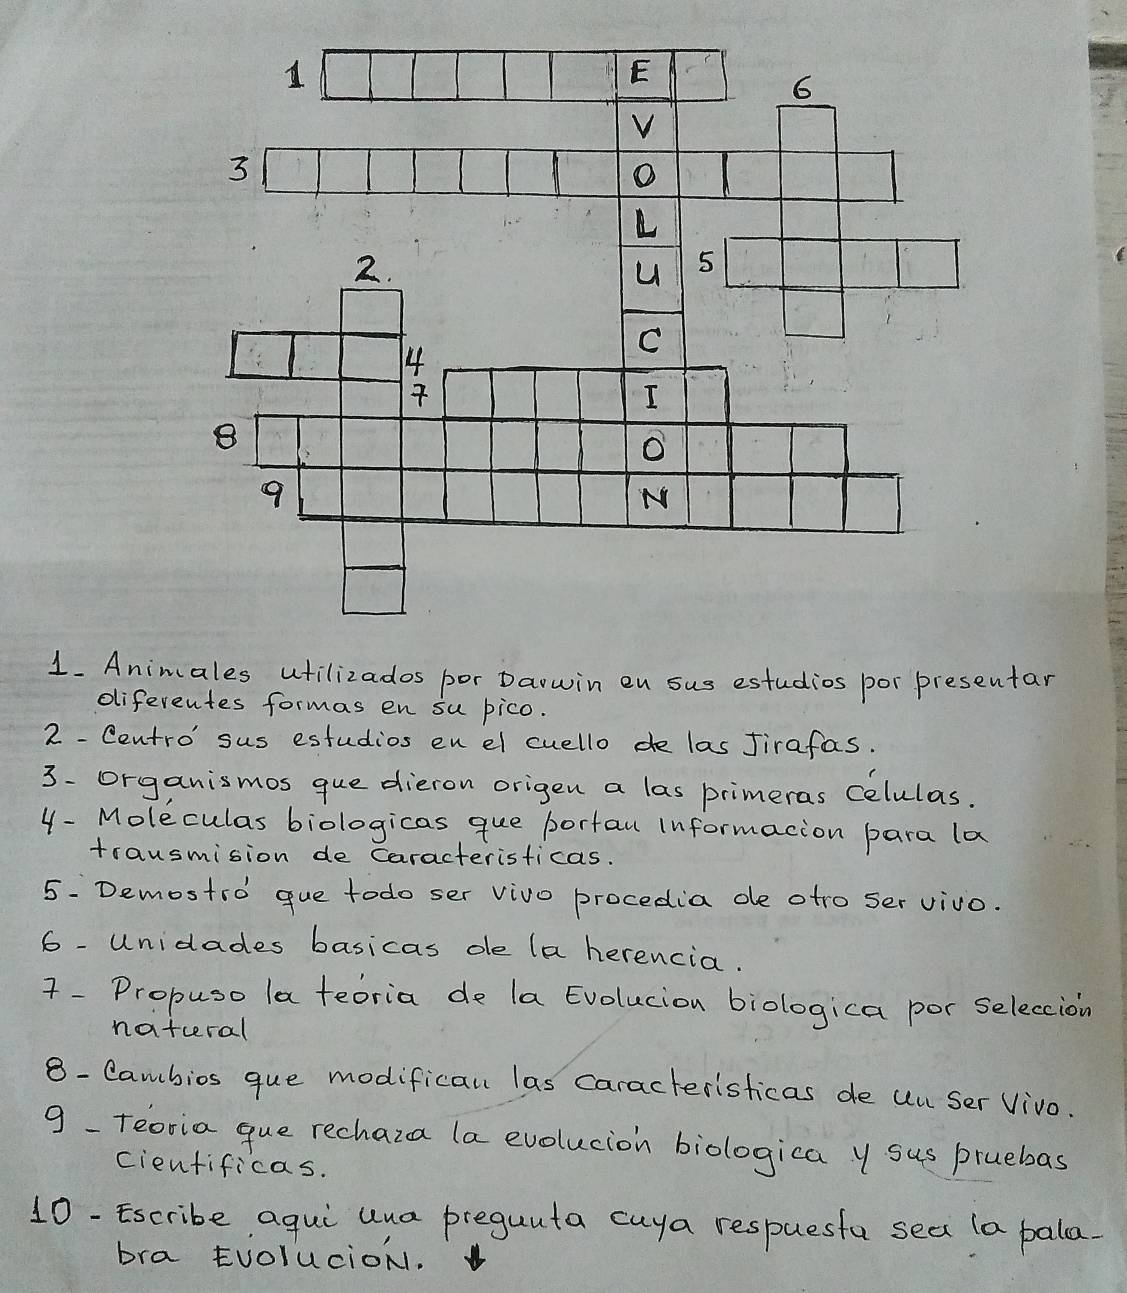 1
E
6
V
3
O
L
2.
U
5
C
4
7
I
8
O
9
N
1- Animales utilizados por Darwin en sus estudios por presentar
diferentes formas en su pico.
2- Centró sus estudios en el cuello de las Jirafas.
3- Organismos que dieron origen a las primeras células.
4- Moléculas biologicas que portan informacion para la
transmision de caracteristicas.
5- Demostró que todo ser vivo procedia de otro ser vivo.
6- Unidades basicas de la herencia.
7- Propuso la teória de la Evolucion biologica por selección
natural
8- Cambios que modifican las caracteristicas de un ser vivo.
9- Teória que rechaza la evolución biologica y sus pruebas
cientificas.
10- Escribe aqui una pregunta cuya respuesta sea la pala-
bra EvolucióN. ↓